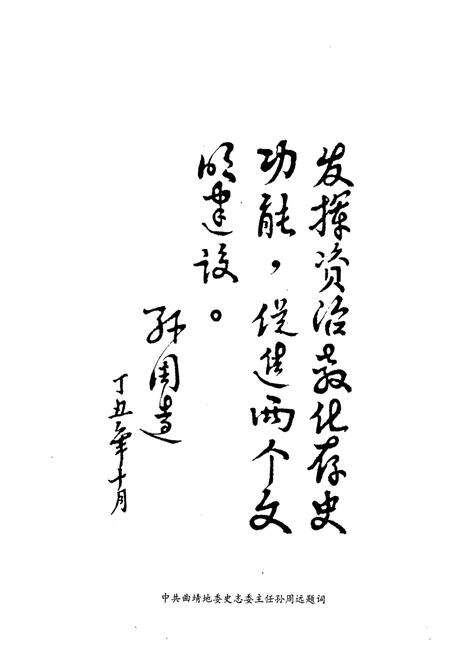 发挥资治教化存史
功能，促进两个文
明建设。
孙周远
丁丑年十月
中共曲靖地委史志委主任孙周远题词